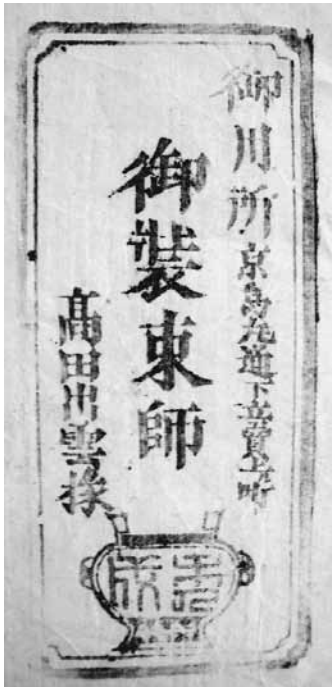 御用所 京烏丸通下立賣上ル町
御裝束師
髙田出雲掾